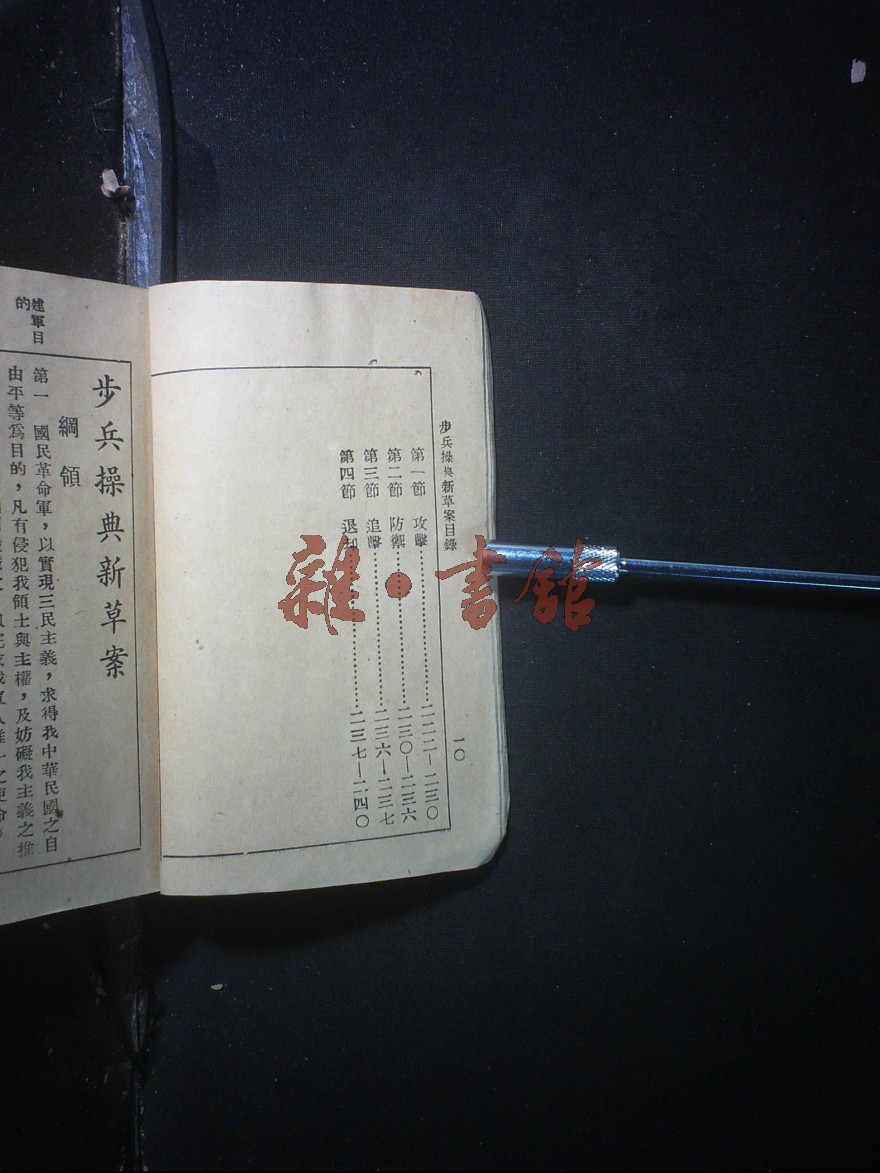 步兵操典新草案目錄
一〇
第一節 攻擊……二二二—二三〇
第二節 防禦……二三〇—二三六
第三節 追擊……二三六—二三七
第四節 退却……二三七—二四〇
步兵操典新草案
綱領
建軍目的
第一 國民革命軍，以實現三民主義，求得我中華民國之自
由平等爲目的，凡有侵犯我領土與主權，及妨礙我主義之推
雜·書館